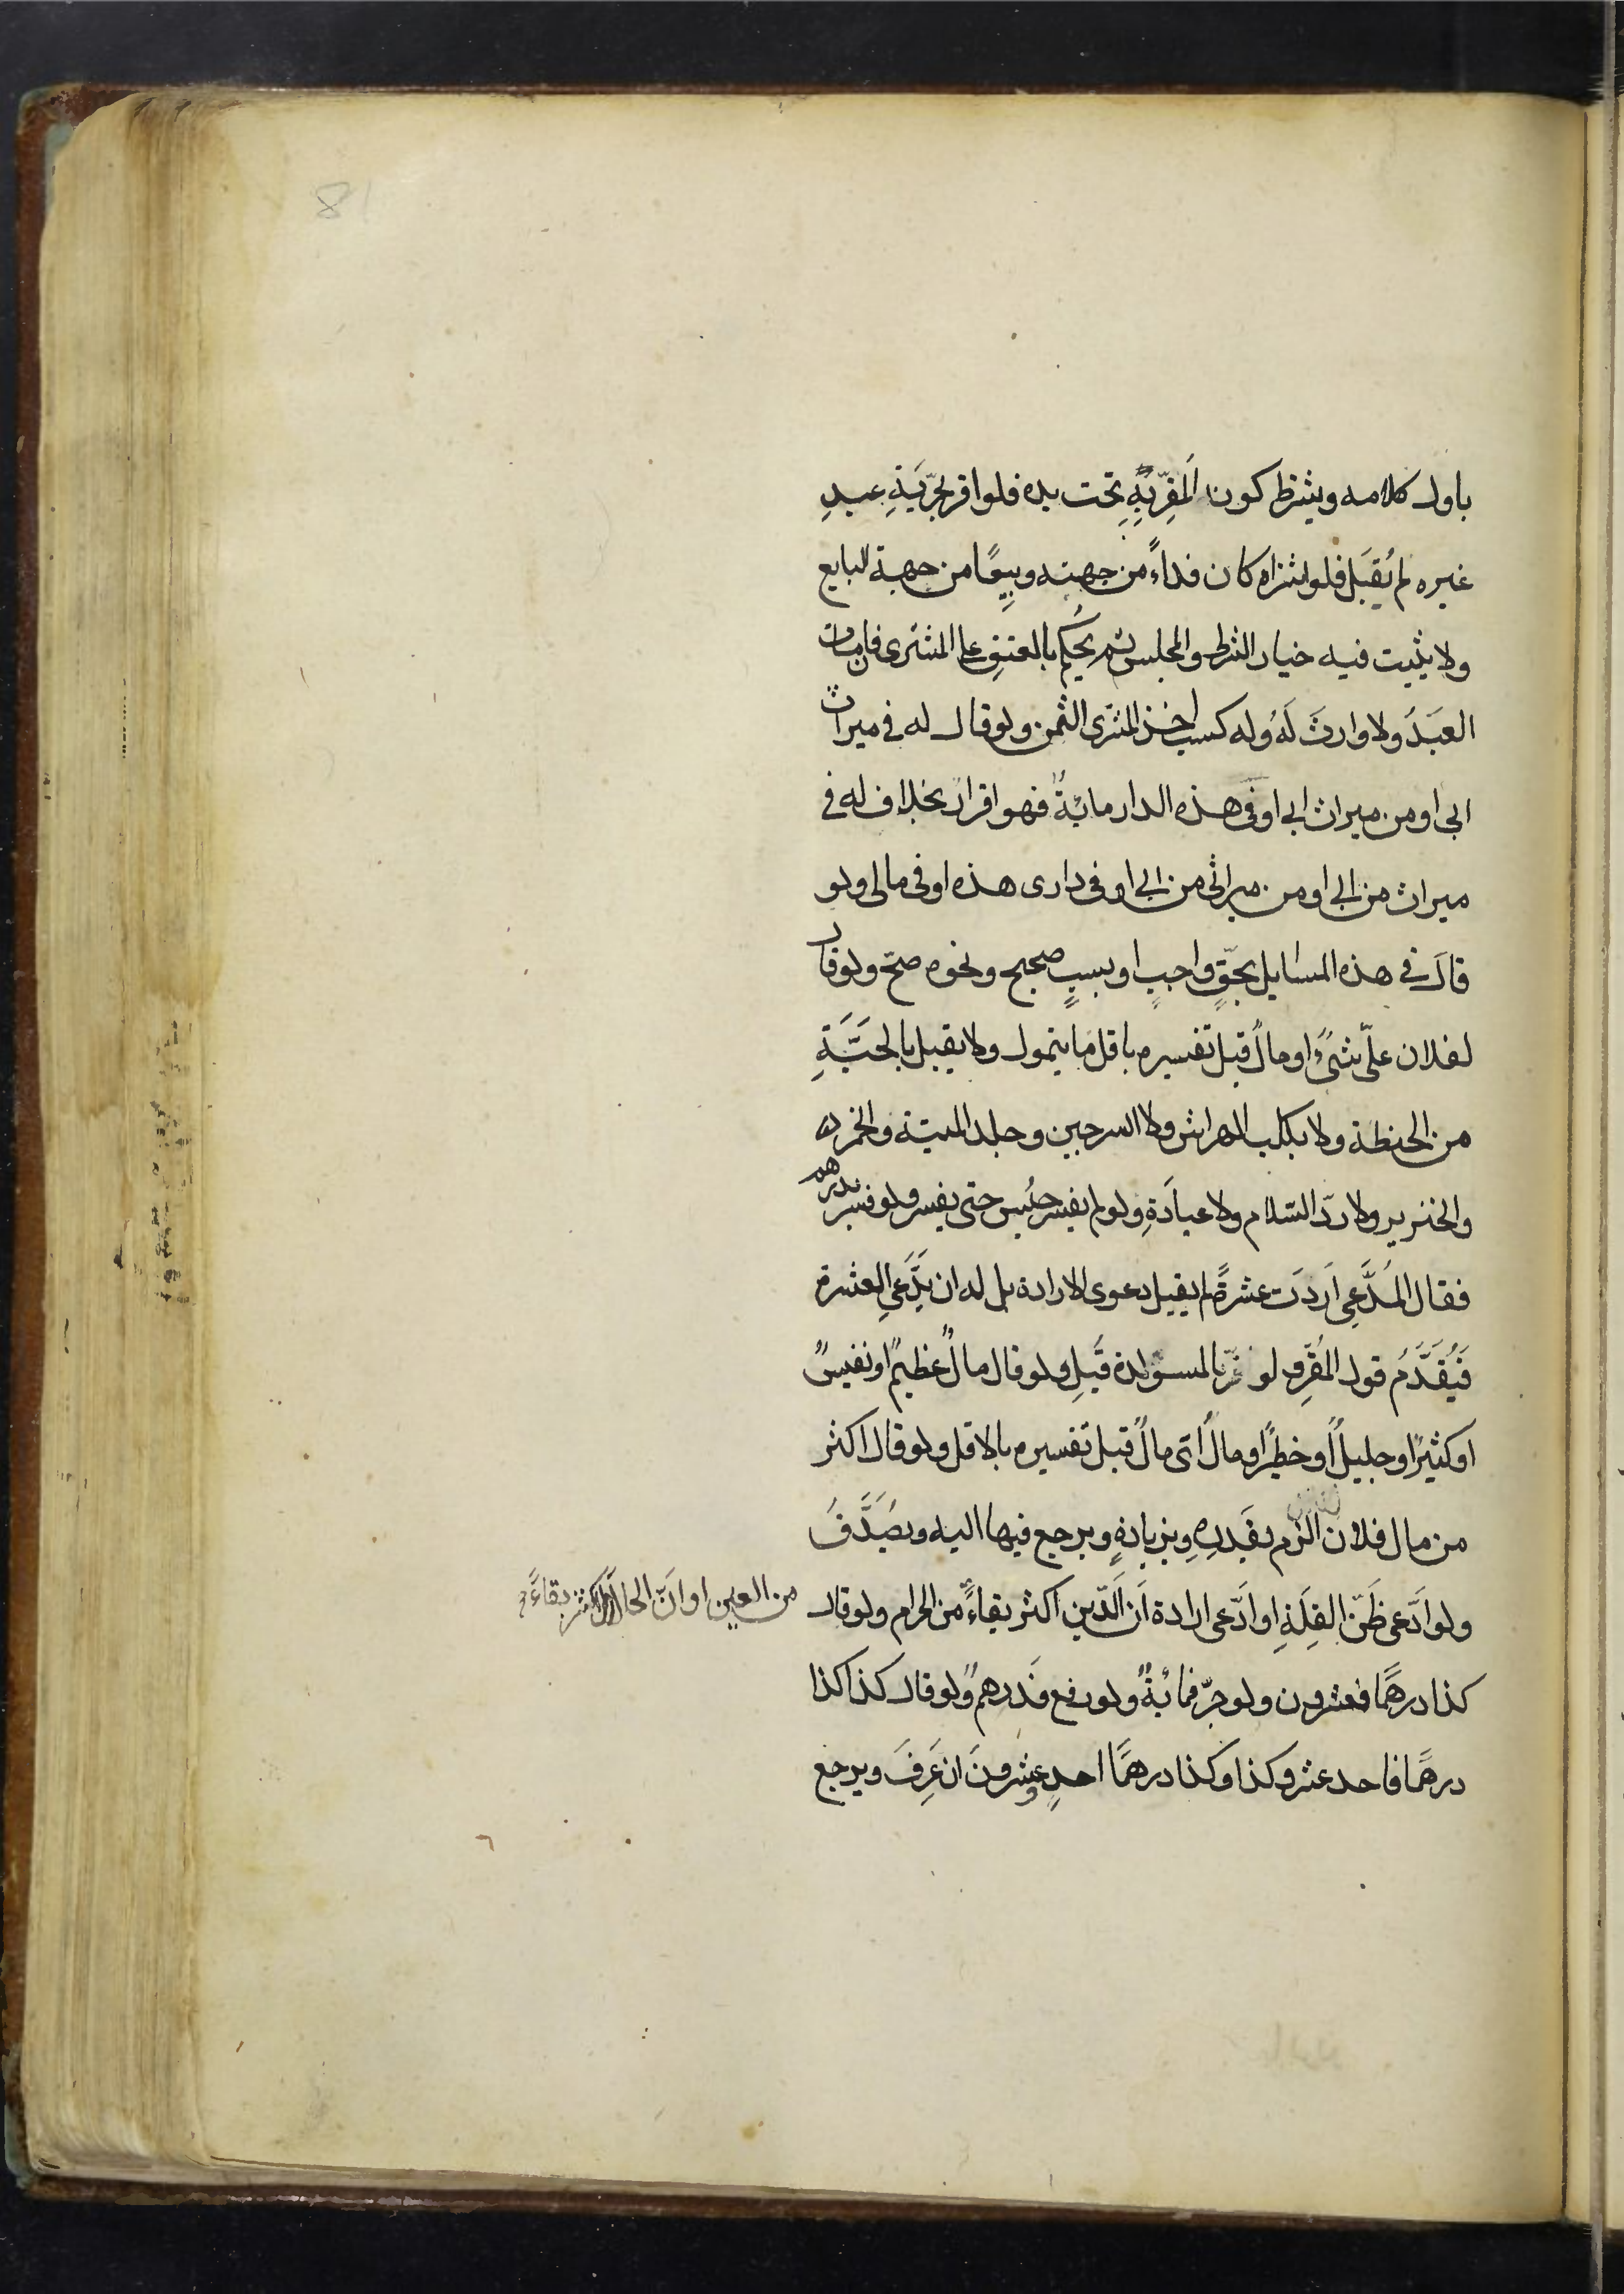 81
باول كلامه ويشترط كون المقرّ بِهِ تحت يده فلو اقر بحرّيّةِ عبدِ
غيره لم يُقبَل فلو اشتراه كان فداءً من جهته وبيعًا من جهة البايع
ولا يثبت فيه خيار الشرط والمجلس ثم يُحكم بالعتقِ على المشترى فان مات
العبدُ ولا وارثَ لَهُ وله كسب اخذ المشترى الثمن ولو قال له في ميراث
ابى او من ميراث ابى او في هذه الدار مائةٌ فهو اقرار بخلاف له في
ميراث من ابى او من ميراثى من ابى او في دارى هذه او في مالى ولو
قال في هذه المسايل بحقٍّ واجبٍ او بسببٍ صحيح ونحوه صحّ ولو قال
لفلان علىّ شىءٌ او مالٌ قبل تفسيره باقل ما يتمول ولا يقبل بالحبّةِ
من الحنطة ولا بكلب الهراش ولا السرجين وجلد الميتة والخمر
والخنزير ولا ردّ السّلام ولا عيادَةِ ولو لم يفسر حُبِس حتى يفسر ولو فسر بدرهم
فقال المدَّعِى اردتَ عشرةً لم يقبل دعوى الارادة بل له ان يدَّعى العشرة
فَيُقَدَّمُ قول المُقِرِّ ولو فسّر بالمستولدة قُبِل ولو قال مالٌ عظيمٌ او نفيسٌ
او كثيرٌ او جليلٌ او خطيرٌ او مالٌ اى مالٌ قبل تفسيره بالاقل ولو قال اكثر
من مال فلان الزم بقدرِهِ وبزيادةٍ ويرجع فيها اليه ويُصَدَّقُ
ولو ادّعى ظَنّ القِلّةِ او ادّعى ارادة ان الدّين اكثر بقاءً من الحرام ولو قال
من العين او انّ الحلال اكثر بقاءً
كذا درهمًا فعشرون ولو جرّ فمائةٌ ولو رفع فدرهمٌ ولو قال كذا كذا
درهمًا فاحد عشر وكذا وكذا درهمًا احدٍ وعشرونَ ان عَرِفَ ويرجع